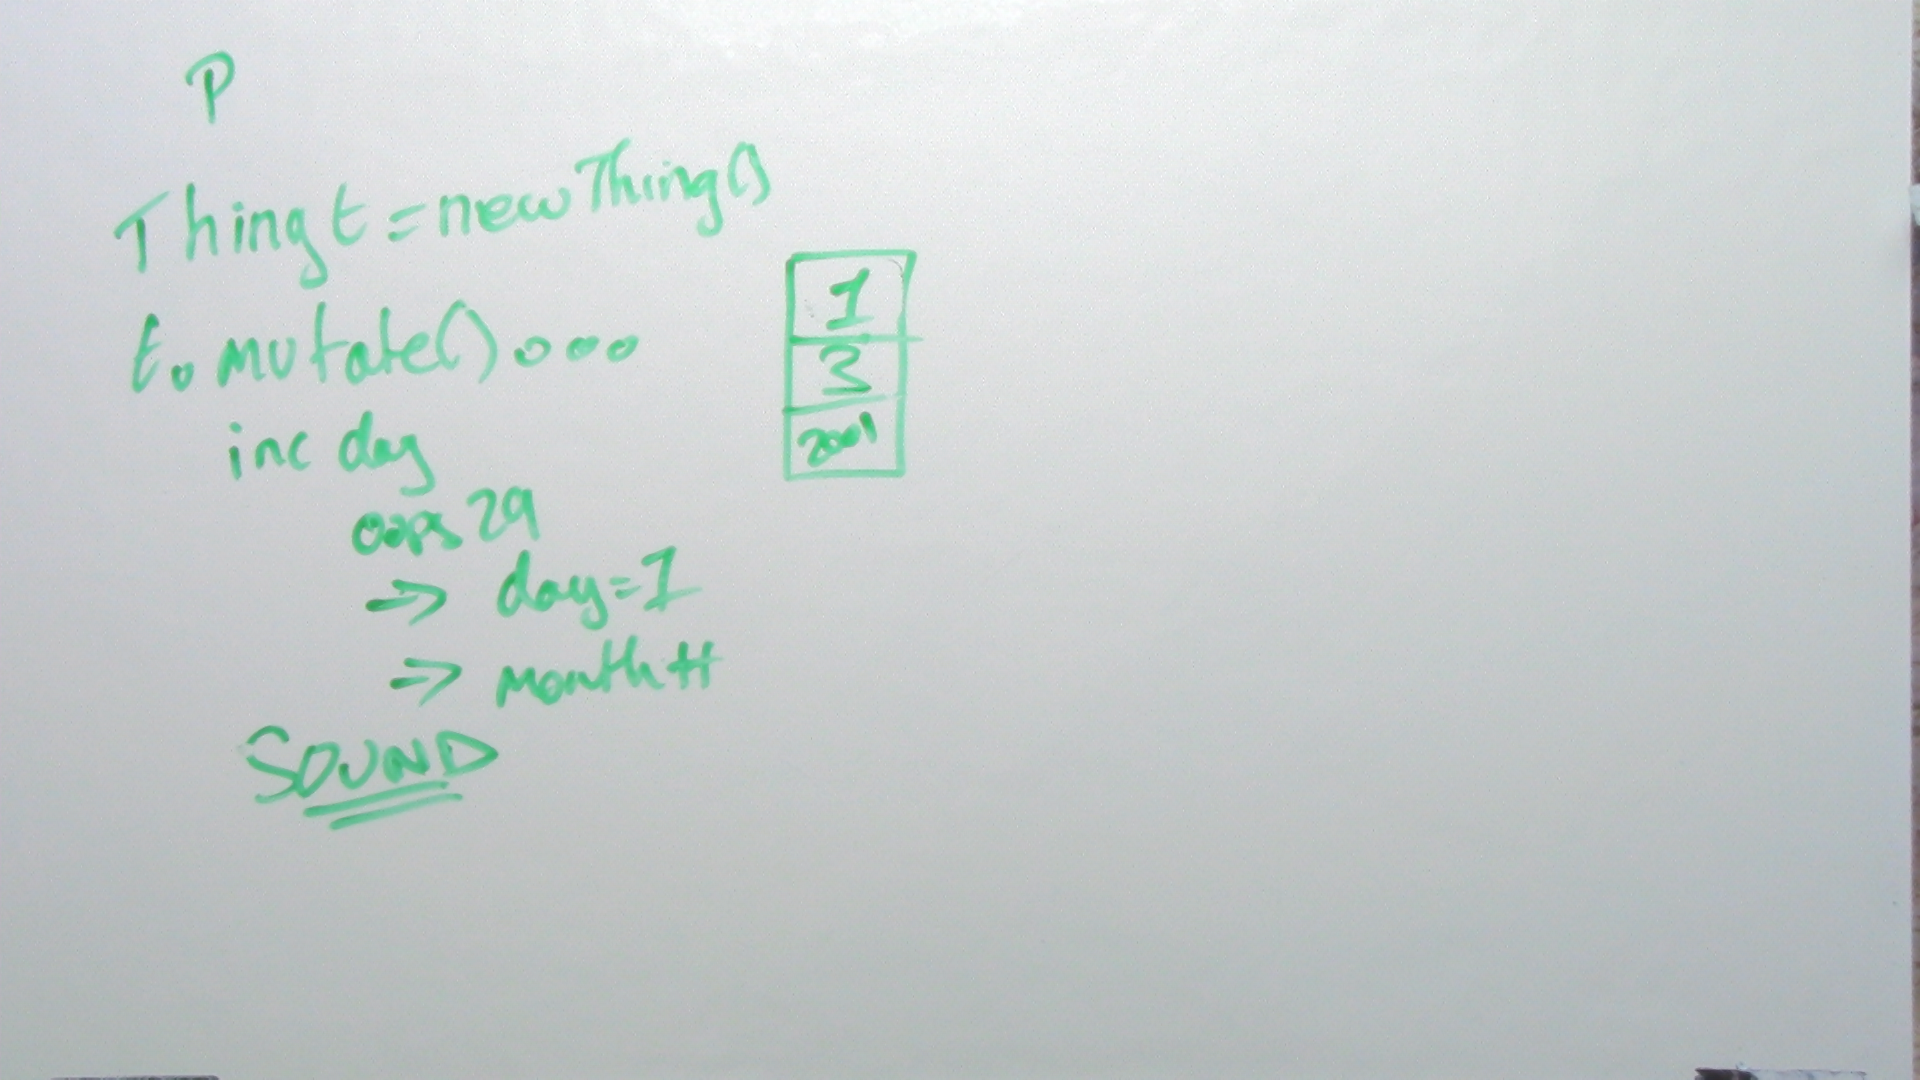 P
Thing t = new Thing()
t.mutate() ooo
inc day
oops 29
=> day=1
=> month++
SOUND
1
3
2001